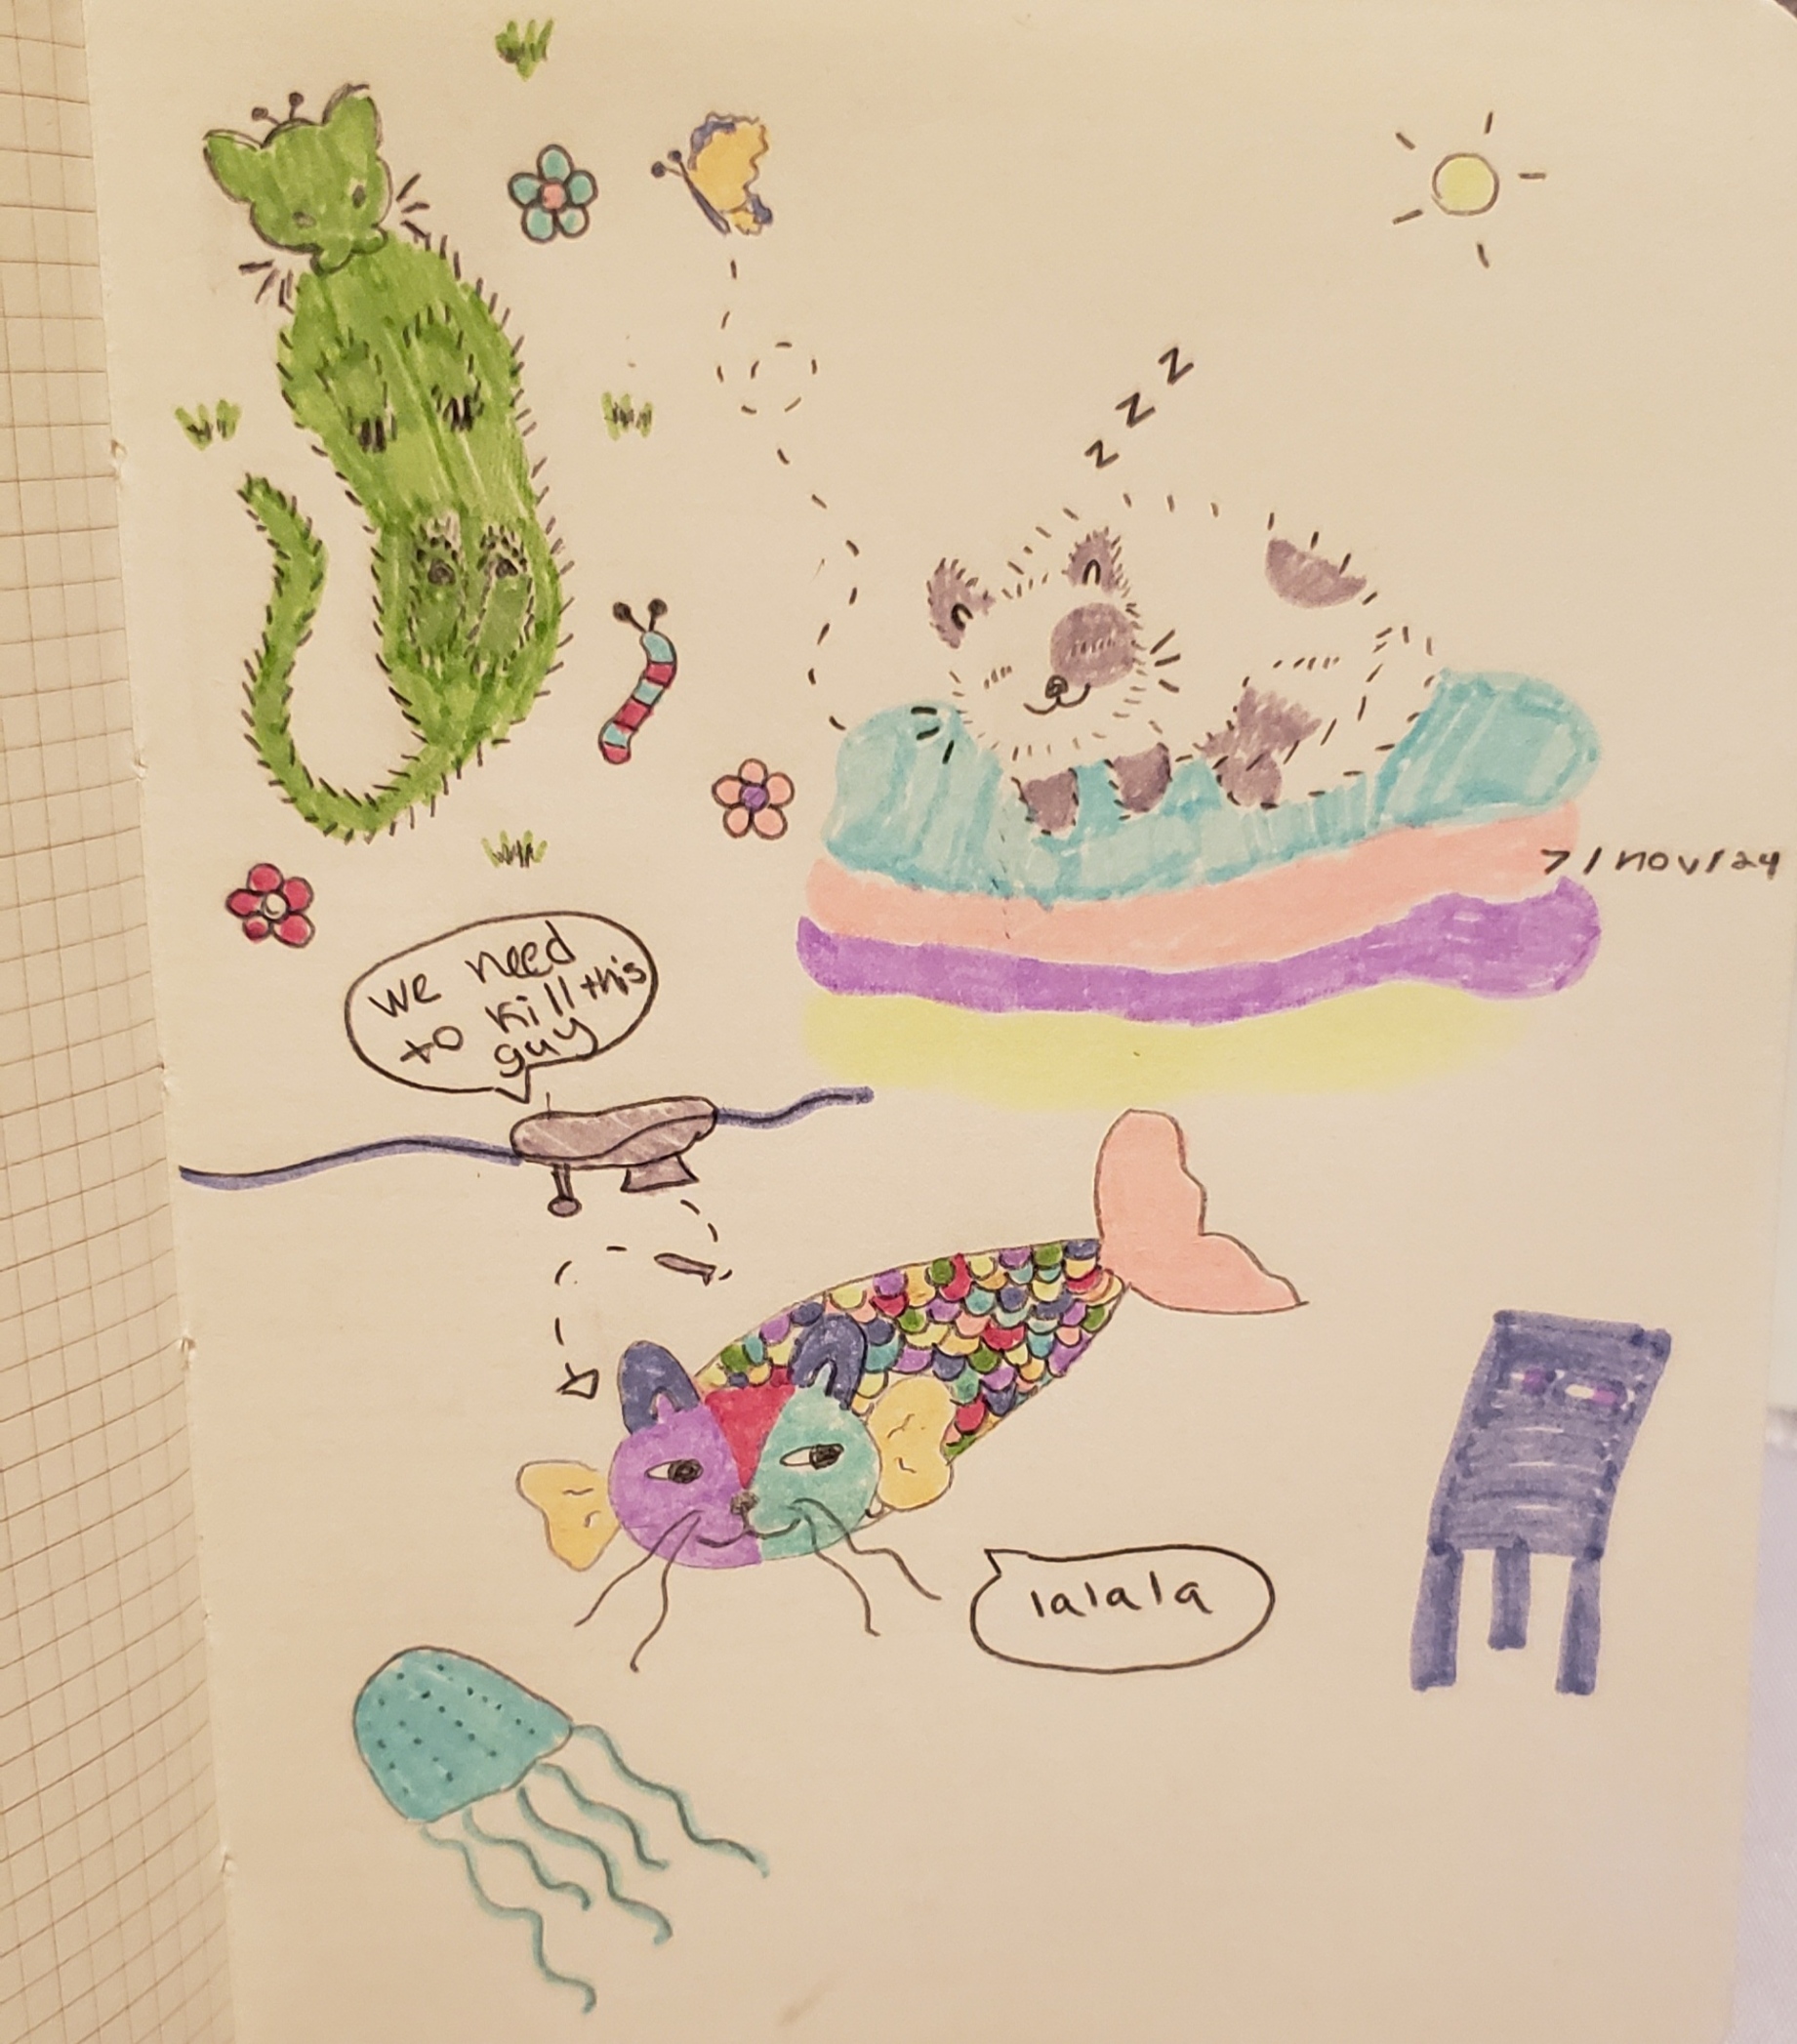 z z z
7/nov/24
we need
to kill this
guy
lalala